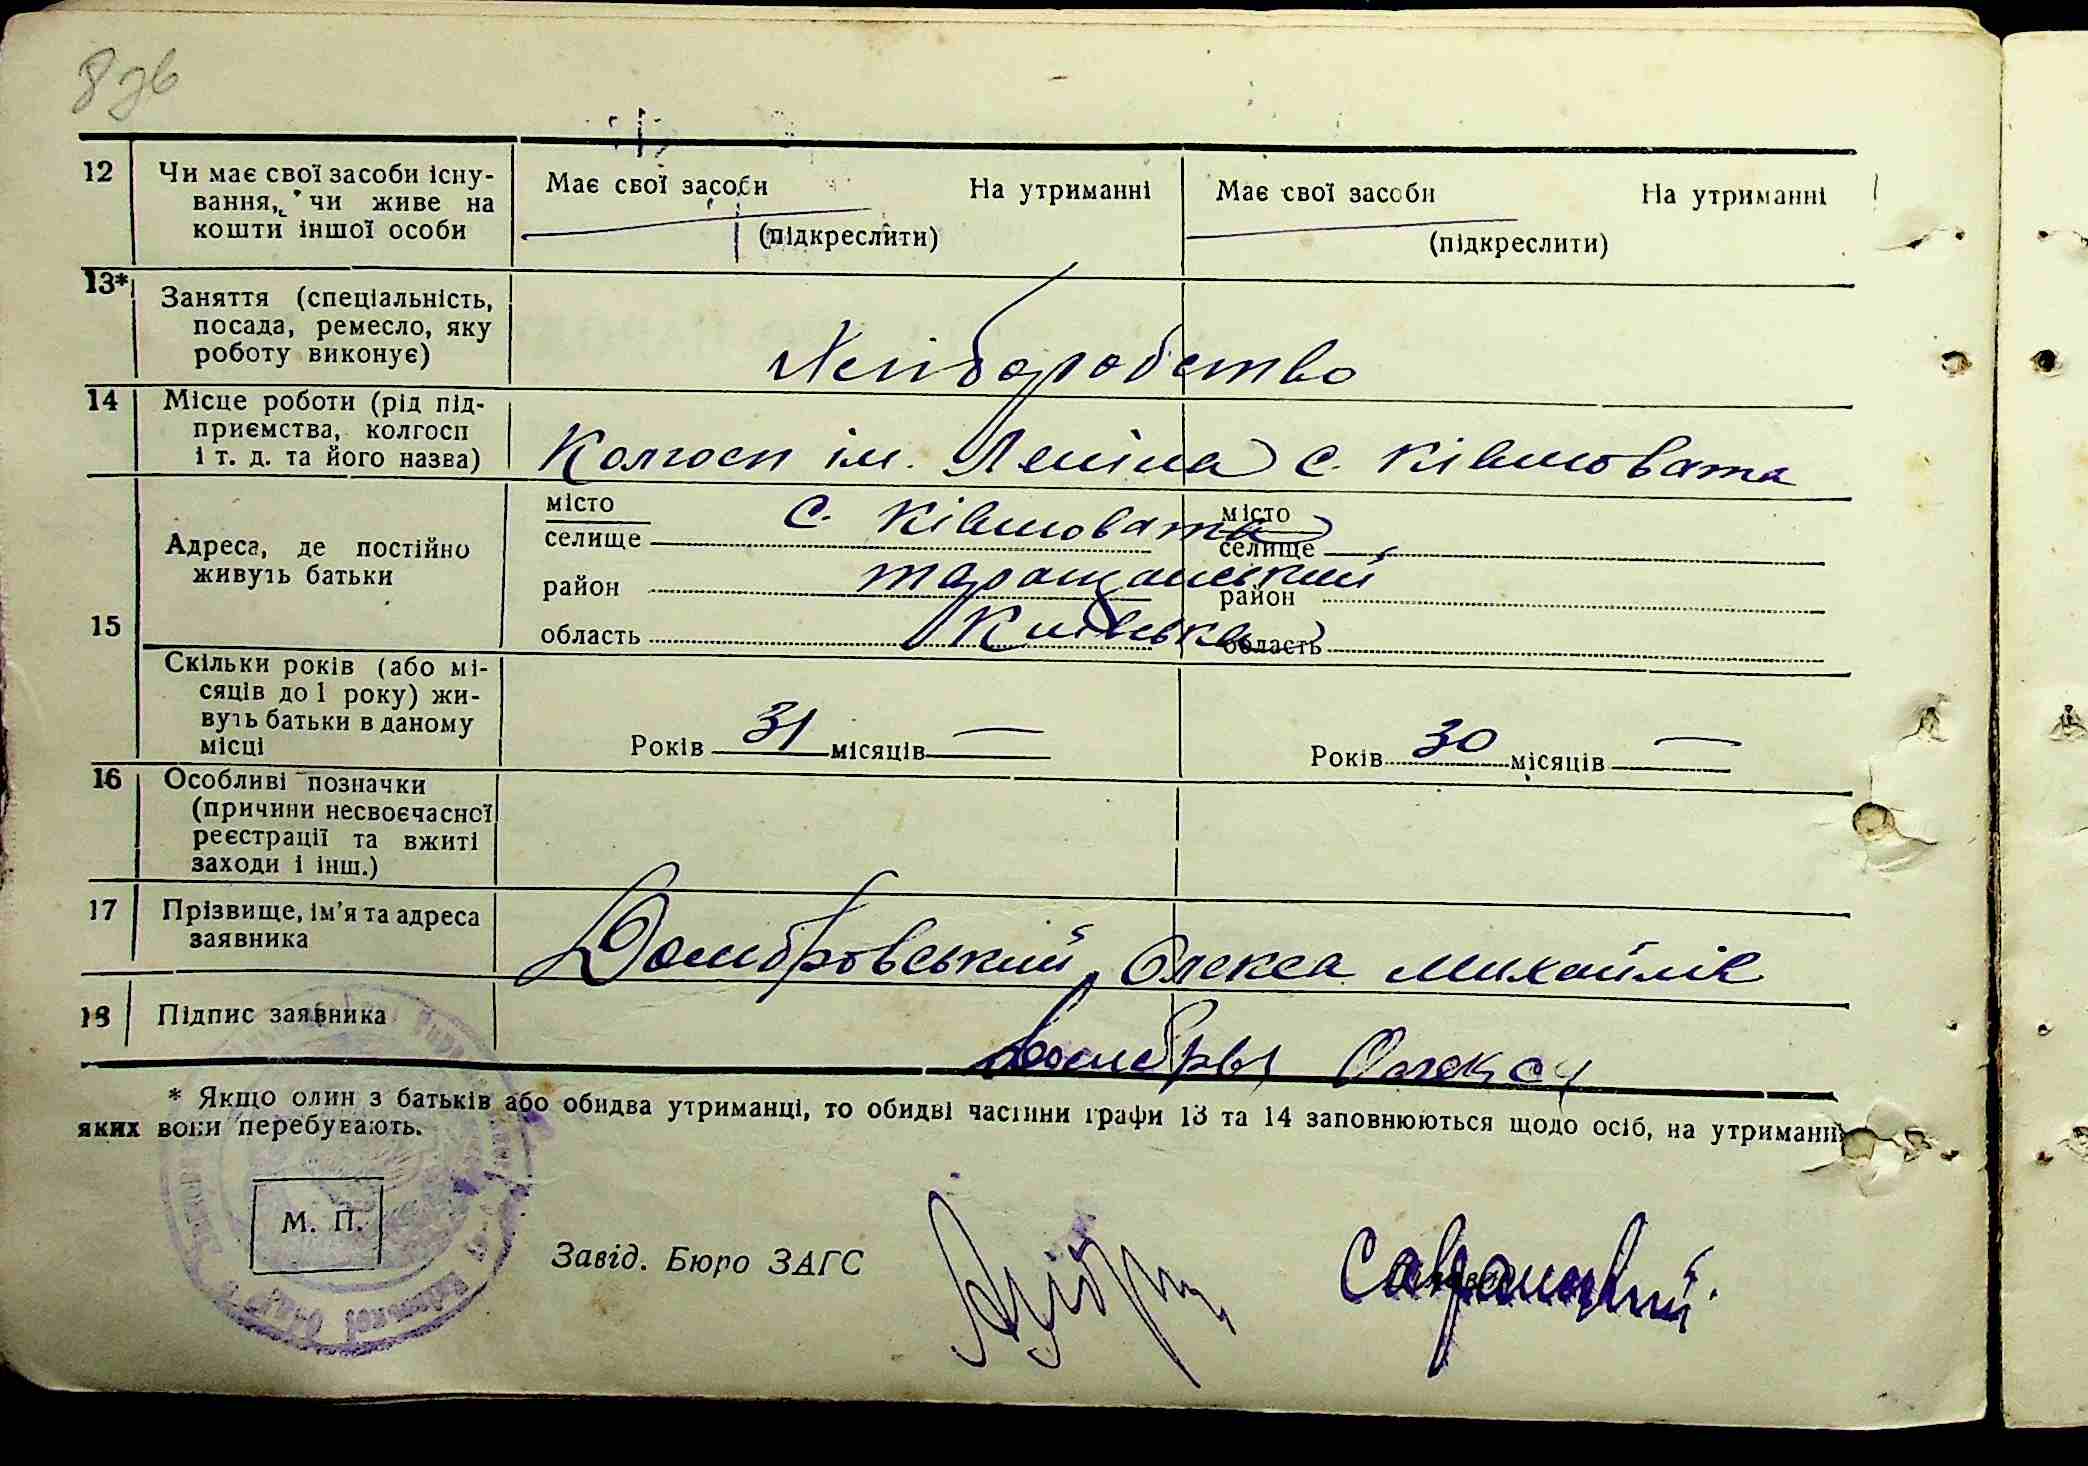 8 зв
12 Чи має свої засоби існу-
вання, чи живе на
кошти іншої особи
Має свої засоби На утриманні
(підкреслити)
Має свої засоби На утриманні
(підкреслити)
13* Заняття (спеціальність,
посада, ремесло, яку
роботу виконує)
Хліборобство
14 Місце роботи (рід під-
приємства, колгосп
і т. д. та його назва)
Колгосп ім. Леніна с. Ківшовата
15 Адреса, де постійно
живуть батьки
місто
селище
с. Ківшовата
район таращанський
область Київська
місто
селище
район
область
Скільки років (або мі-
сяців до 1 року) жи-
вуть батьки в даному
місці
Років 31 місяців —
Років 30 місяців —
16 Особливі позначки
(причини несвоєчасної
реєстрації та вжиті
заходи і інш.)
17 Прізвище, ім'я та адреса
заявника
Домбровський Олекса Михайлів
18 Підпис заявника
Олекса
* Якщо один з батьків або обидва утриманці, то обидві частини графи 13 та 14 заповнюються щодо осіб, на утриманні
яких вони перебувають.
М. П.
Завід. Бюро ЗАГС